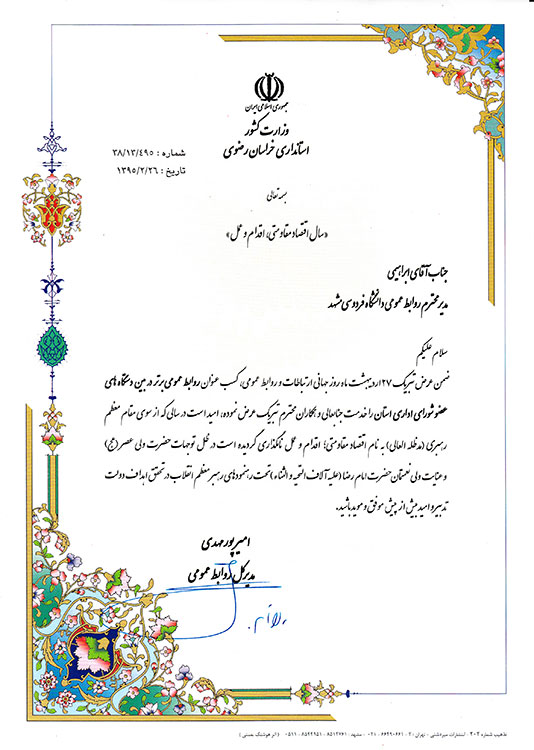 جمهوری اسلامی ایران
وزارت کشور
استانداری خراسان رضوی
شماره : ۳۸/۱۳/۴۹۵
تاریخ : ۱۳۹۵/۲/۲۶
بسمه تعالی
«سال اقتصاد مقاومتی؛ اقدام و عمل»
جناب آقای ابراهیمی
مدیر محترم روابط عمومی دانشگاه فردوسی مشهد
سلام علیکم
ضمن عرض تبریک ۲۷ اردیبهشت ماه روز جهانی ارتباطات و روابط عمومی، کسب عنوان روابط عمومی برتر در بین دستگاه های
عضو شورای اداری استان را خدمت جنابعالی و همکاران محترم تبریک عرض نموده، امید است در سالی که از سوی مقام معظم
رهبری (مدظله العالی) به نام اقتصاد مقاومتی؛ اقدام و عمل نامگذاری گردیده است در ظل توجهات حضرت ولی عصر (عج)
و عنایت ولی نعمتمان حضرت امام رضا (علیه آلاف التحیه و الثناء) تحت رهنمودهای رهبر معظم انقلاب در تحقق اهداف دولت
تدبیر و امید بیش از پیش موفق و موید باشید.
امیر پورمهدی
مدیرکل روابط عمومی
تذهیب شماره ۲۰۲ - انتشارات میردشتی - تهران : ۲ - ۶۶۴۹۰۶۶۱ - ۰۲۱ مشهد : ۸۵۱۲۷۶۱ - ۸۵۴۴۹۵۱ - ۰۵۱۱ (اثر هوشنگ حسنی)